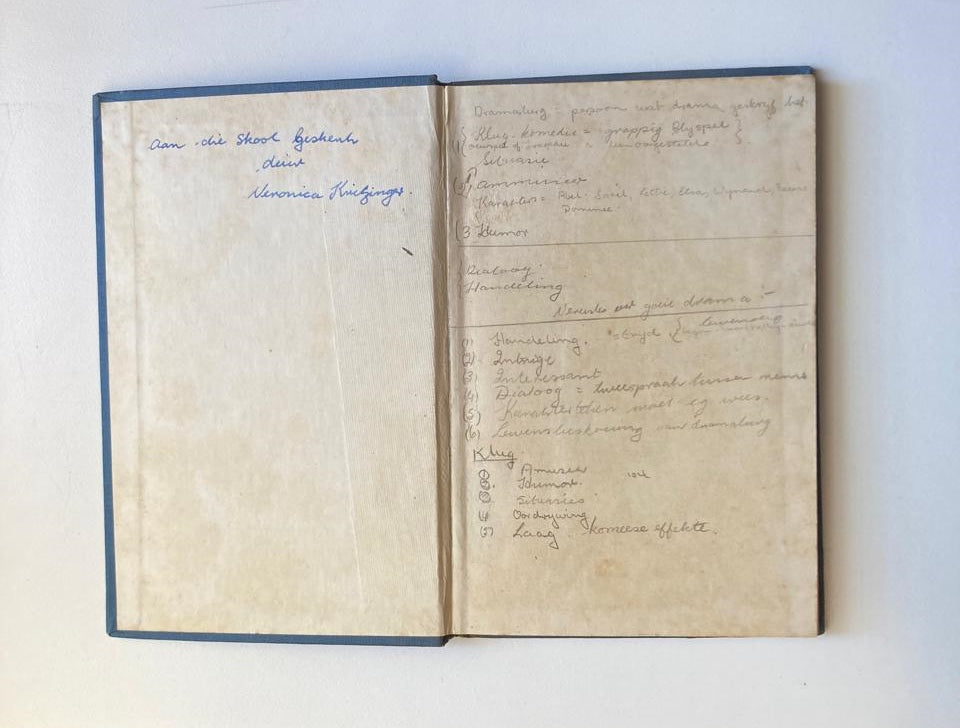 Aan die Skool Geskenk
deur
Veronica Kritzinger.
Dramaturg = persoon wat drama geskryf het
Klug-komedie = grappig Blyspel
Situasie
Karakters = Lettie, Elsa, Wynand,
Dominee.
(3 Humor
Dialoog.
Handeling
Vereistes vir goeie drama :-
(1) Handeling. stryd {
(2) Intrige
(3) Interessant
(4) Dialoog = tweespraak tussen mense
(5) Karakters moet eg wees.
(6) Lewensbeskouing van dramaturg
Klug
Amuseer
Humor.
Situasies
(4) Oordrywing
(5) Laag komiese effekte.